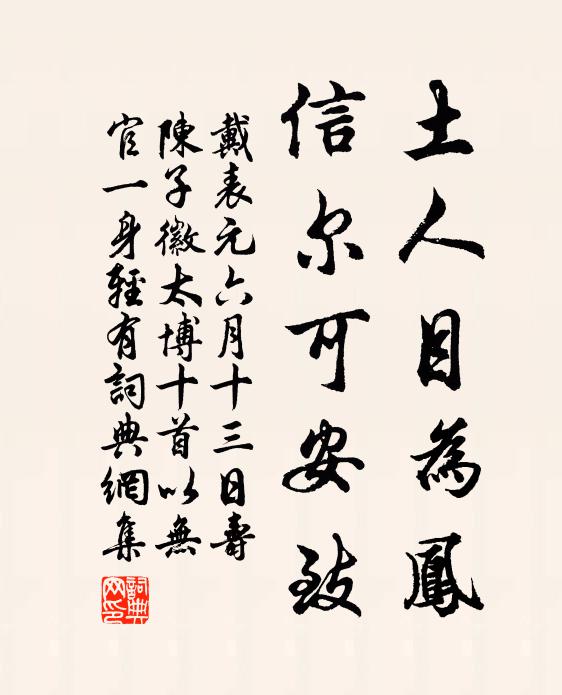 土人目為鳳
信尔可安致
戴表元六月十三日壽
陳子徽太博十首以無
官一身輕有詞典網集
詞典网印